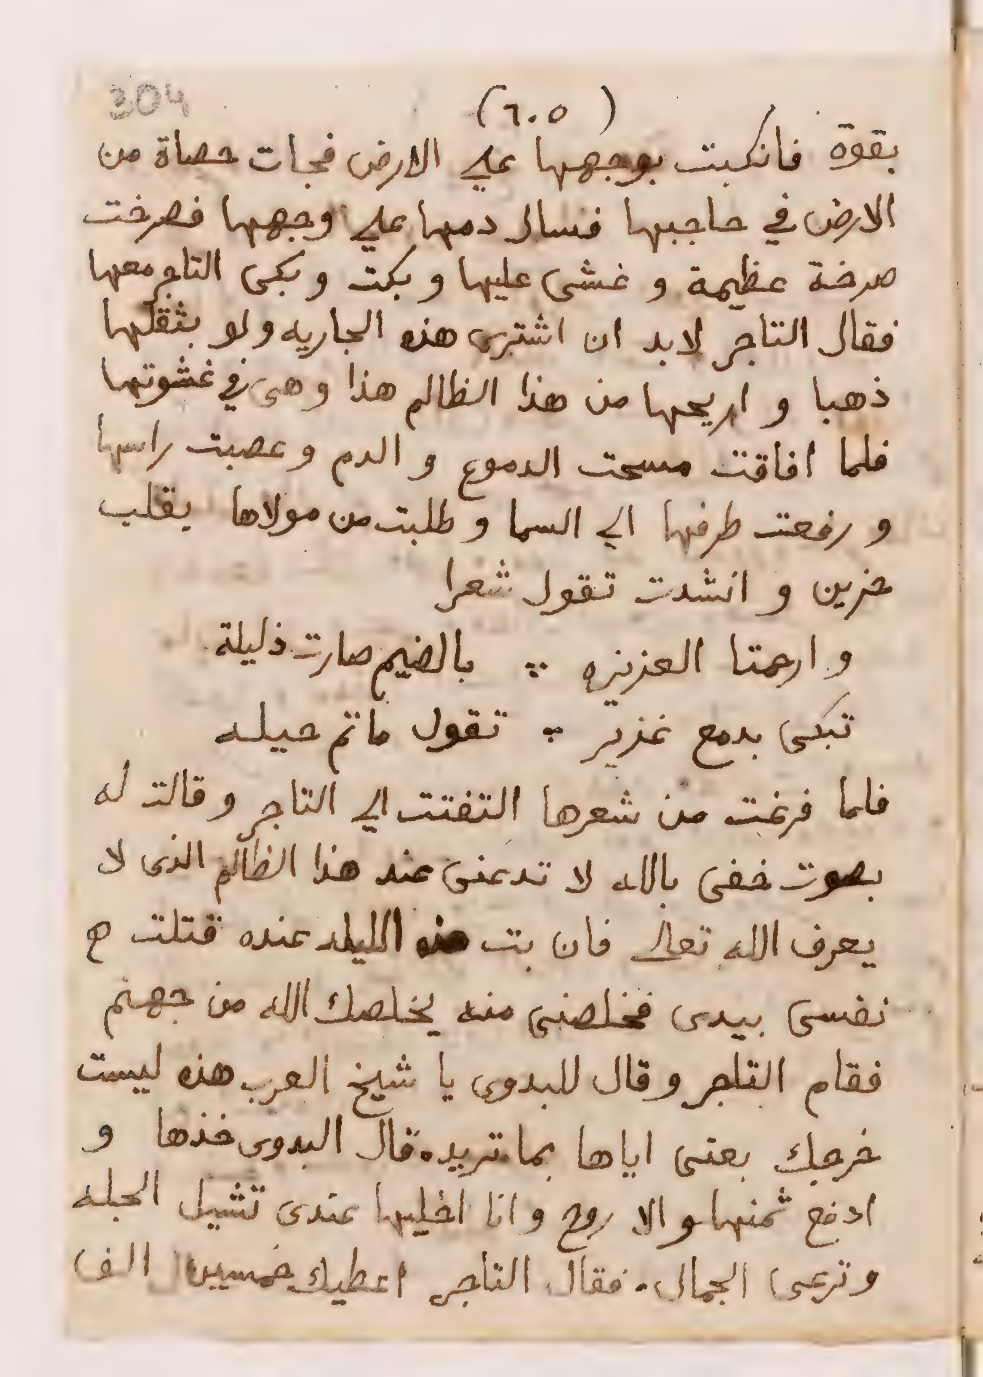 304
(٦٠٥)
بقوة فانكبت بوجهها علي الارض فجات حصاة من
الارض في حاجبها فسال دمها علي وجهها فصرخت
صرخة عظيمة و غشى عليها و بكت و بكى التاجر معها
فقال التاجر لابد ان اشترى هذه الجاريه ولو بثقلها
ذهبا و اريحها من هذا الظالم هذا وهى في غشوتها
فلما افاقت مسحت الدموع و الدم وعصبت راسها
و رفعت طرفها الي السما و طلبت من مولاها بقلب
حزين و انشدت تقول شعرا
و ارحمتا العزيزه ∴ بالضيم صارت ذليلة
تبكى بدمع غزير ∴ تقول ماتم حيله
فلما فرغت من شعرها التفتت الي التاجر و قالت له
بصوت خفى بالله لا تدعنى عند هذا الظالم الذى لا
يعرف الله تعالى فان بت هذه الليله عنده قتلت
نفسى بيدى فخلصنى منه يخلصك الله من جهنم
فقام التاجر وقال للبدوى يا شيخ العرب هذه ليست
غرجك بعنى اياها بما تريد. قال البدوى خذها و
ادفع ثمنها و الا روح و انا اخليها عندى تشيل الجله
و ترعى الجمال. فقال التاجر اعطيك خمسين الف